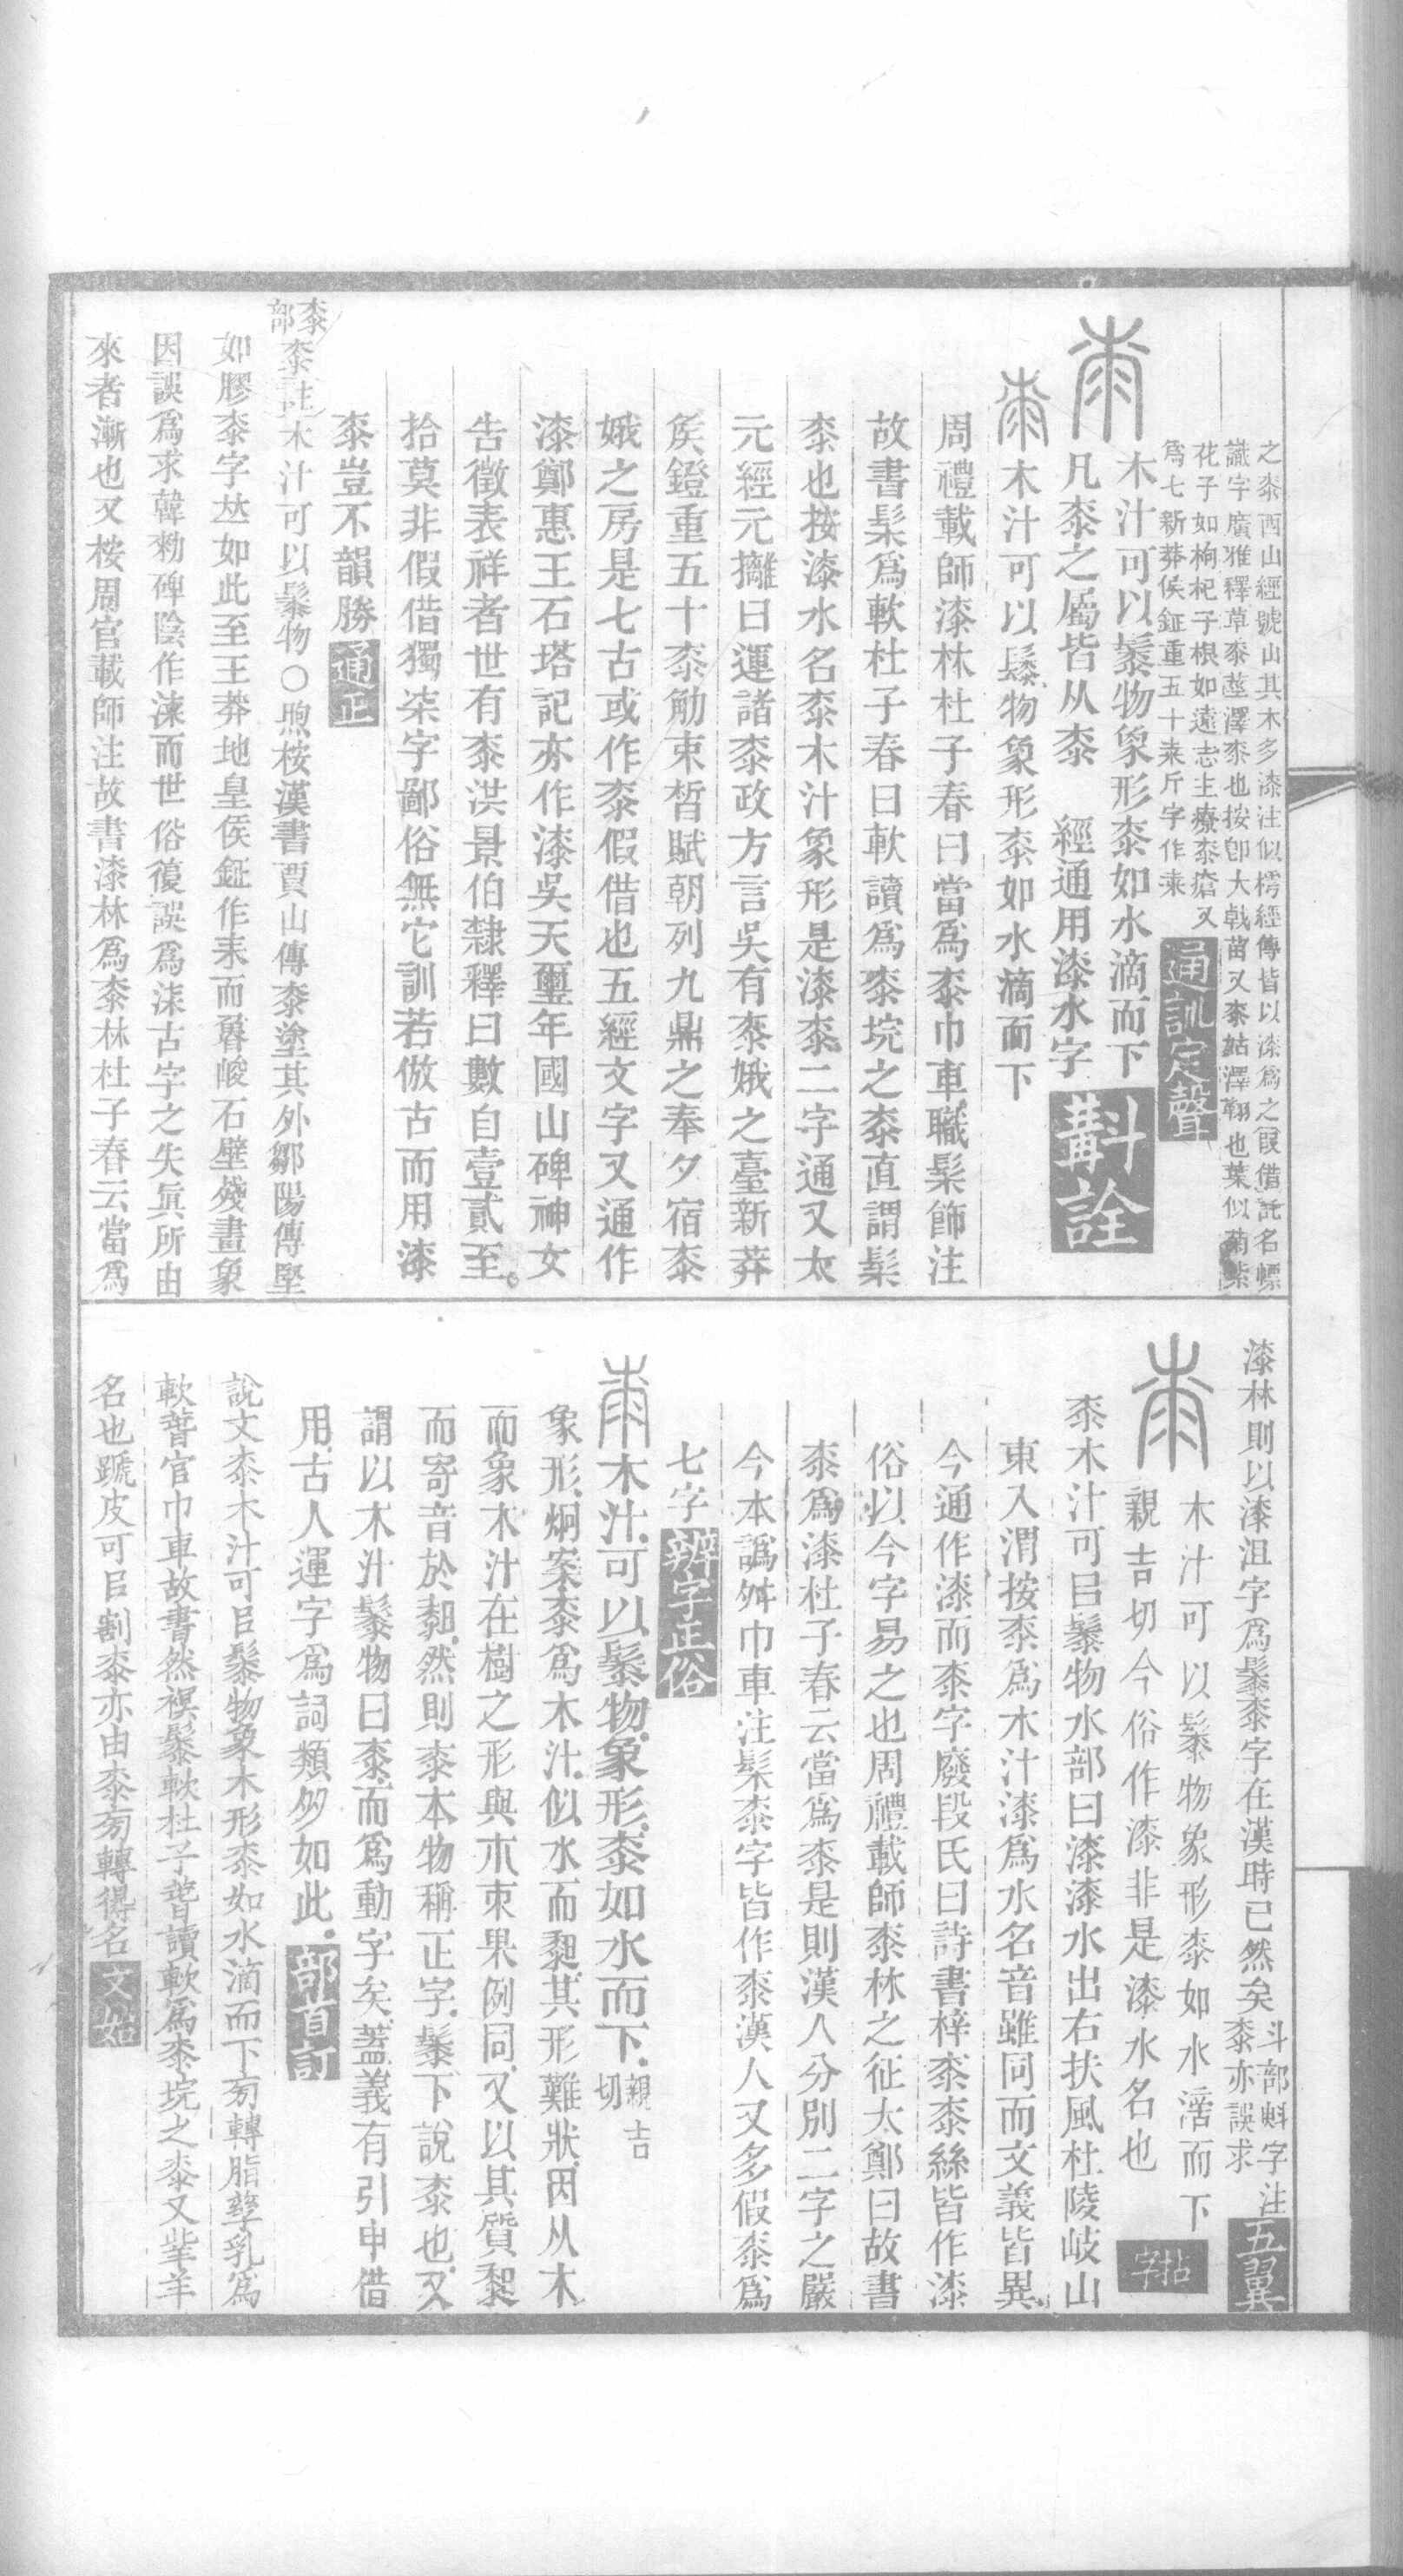 之桼西山經號山其木多漆注似樗經傳皆以漆爲之叚借託名幖
識字廣雅釋草桼莖澤桼也按卽大戟苗又桼姑澤翱也葉似菊紫
花子如枸杞子根如遠志主療桼瘡又
爲七新莽侯鉦重五十桼斤字作桼
通訓定聲
木汁可以髹物象形桼如水滴而下
凡桼之屬皆从桼　經通用漆水字
斠詮
桼木汁可以髹物象形桼如水滴而下
周禮載師漆林杜子春曰當爲桼巾車職髤飾注
故書髤爲軟杜子春曰軟讀爲桼垸之桼直謂髤
桼也按漆水名桼木汁象形是漆桼二字通又太
元經元攡曰運諸桼政方言吳有桼娥之臺新莽
矦鐙重五十桼觔束晳賦朝列九鼎之奉夕宿桼
娥之房是七古或作桼假借也五經文字又通作
漆鄭惠王石塔記亦作漆吳天璽年國山碑神女
告徵表祥者世有桼洪景伯隸釋曰數自壹貳至
拾莫非假借獨柒字鄙俗無它訓若倣古而用漆
桼豈不韻勝
通正
桼部
桼註木汁可以髹物○煦桉漢書賈山傳桼塗其外鄒陽傳堅
如膠桼字竝如此至王莽地皇侯鉦作耒而魯峻石壁殘畫象
因誤爲求韓勑碑陰作涑而世俗復誤爲沫古字之失眞所由
來者漸也又桉周官載師注故書漆林爲桼林杜子春云當爲
漆林則以漆沮字爲髹桼字在漢時已然矣
斗部斞字注
桼亦誤求
五翼
木汁可以髹物象形桼如水滴而下
親吉切今俗作漆非是漆水名也
拈字
桼木汁可㠯髹物水部曰漆漆水出右扶風杜陵岐山
東入渭按桼爲木汁漆爲水名音雖同而文義皆異
今通作漆而桼字廢段氏曰詩書梓桼桼絲皆作漆
俗以今字易之也周禮載師桼林之征太鄭曰故書
桼爲漆杜子春云當爲桼是則漢人分別二字之嚴
今本譌舛巾車注髤桼字皆作桼漢人又多假桼爲
七字
辨字正俗
桼木汁可以髹物象形桼如水而下
親吉切
象形炯案桼爲木汁似水而黏其形難狀因从木
而象木汁在樹之形與朩朿果例同又以其質黎
而寄音於黏然則桼本物稱正字髹下說桼也又
謂以木汁髹物曰桼而爲動字矣蓋義有引申借
用古人運字爲詞類多如此
部首訂
說文桼木汁可㠯髹物象木形桼如水滴而下菊轉脂孳乳爲
軟萅官巾車故書然𧜀髹軟杜子萅讀軟爲桼垸之桼又挲羊
名也蹏皮可㠯割桼亦由桼菊轉得名
文始